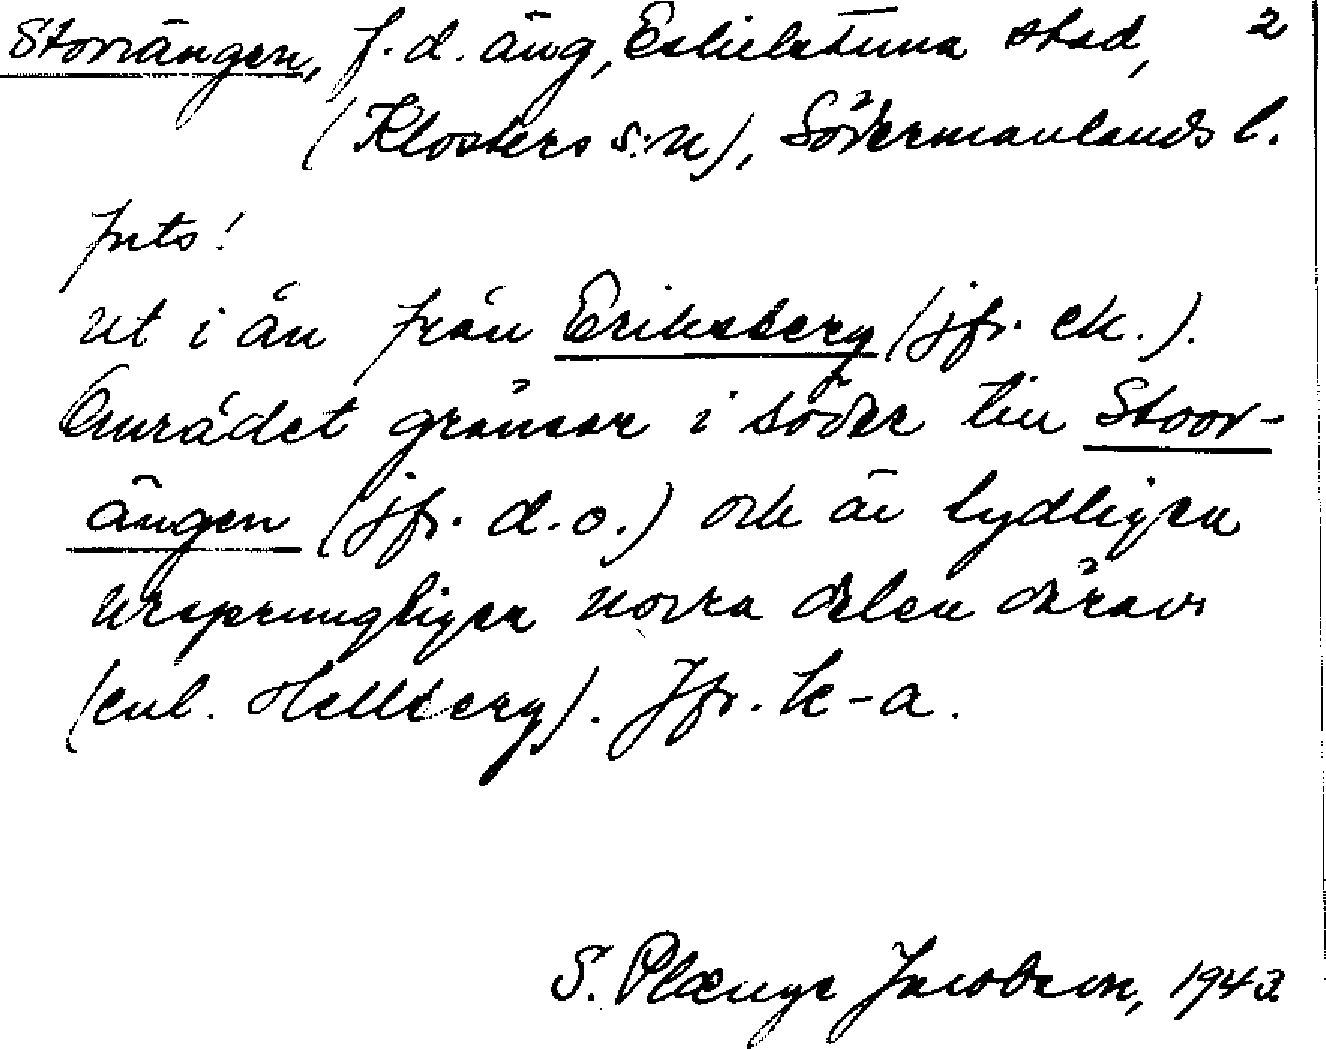 Storrängen, f.d. äng, Eskilstuna stad, 2
(Klosters s:n), Södermanlands l.
forts!
ut i ån från Eriksberg (jfr. ek.).
Området gränsar i söder till Stoor-
ängen (jfr. d.o.) och är tydligen
ursprungligen norra delen därav
(enl. Hellberg). Jfr. k-a.
S. Plænge Jacobson, 1943